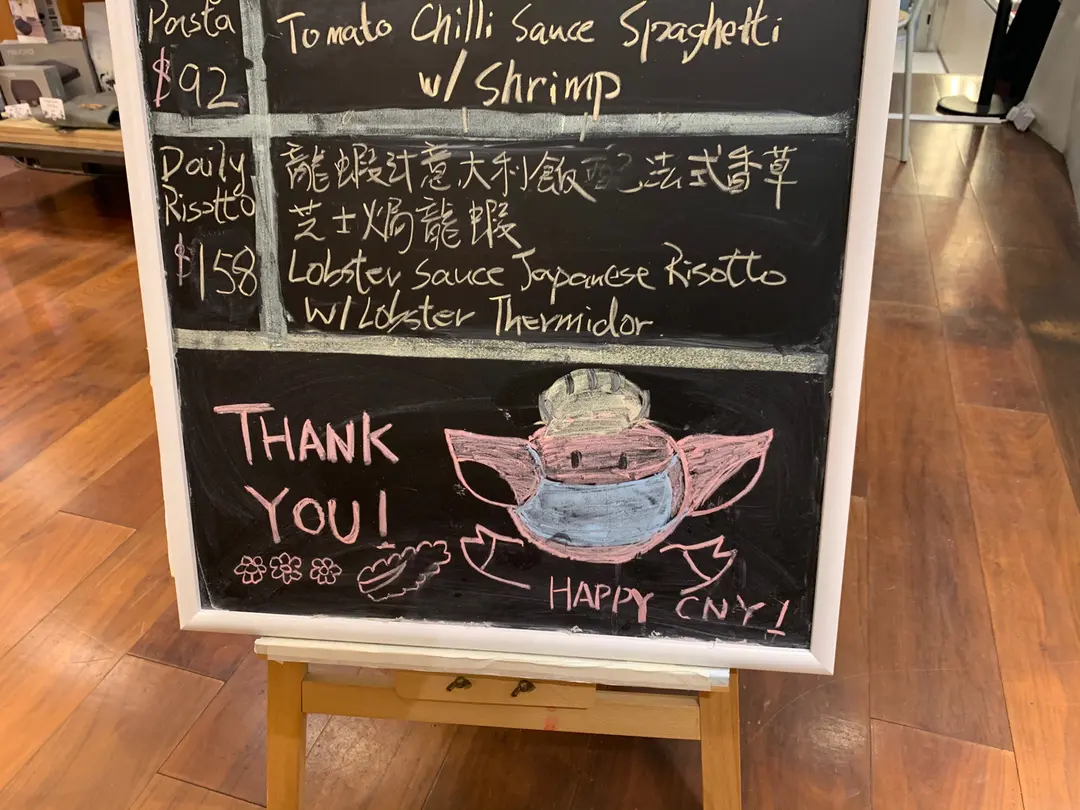 Pasta
$92
Tomato Chilli Sauce Spaghetti
w/ Shrimp
Daily
Risotto
$158
龍蝦汁意大利飯配法式香草
芝士焗龍蝦
Lobster Sauce Japanese Risotto
W/ Lobster Thermidor.
THANK
YOU!
HAPPY CNY!